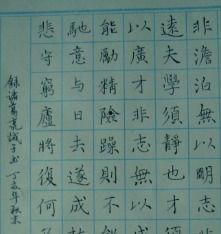 非澹泊無以明志
遠夫學須靜也才
以廣才非志無以
能勵精險躁則不
馳意与日去遂成
悲守窮廬將復何
錄諸葛亮誡子書 丁亥年秋末